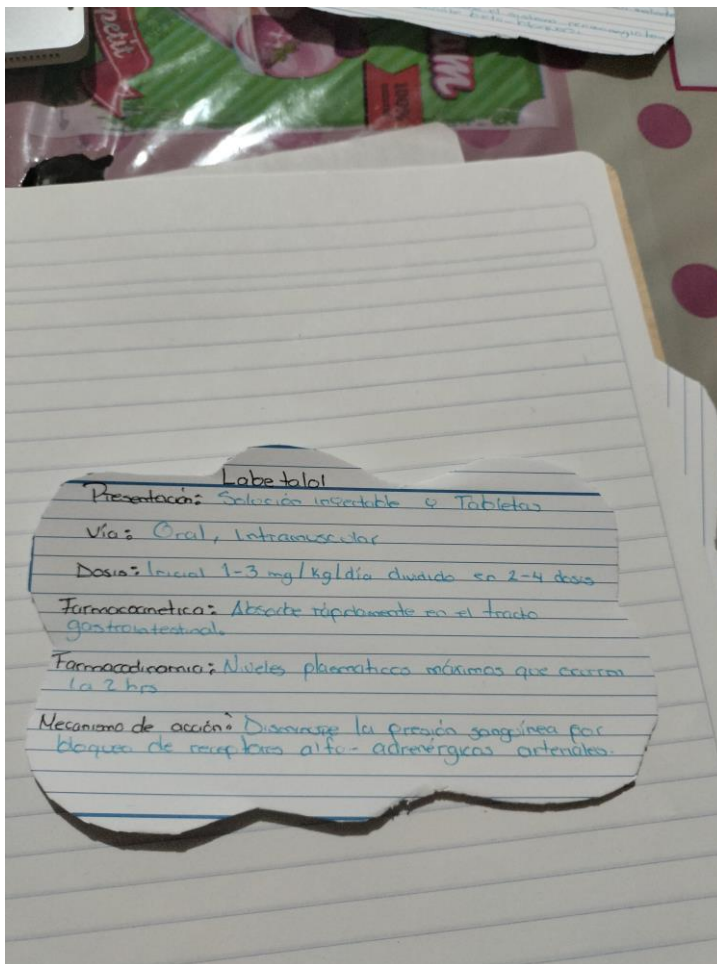 petit
100%
m
Labetalol
Presentación: Solución inyectable y Tabletas
Vía: Oral, Intramuscular
Dosis: Inicial 1-3 mg/kg/día dividido en 2-4 dosis
Farmacocinetica: Absorbe rápidamente en el tracto
gastrointestinal.
Farmacodinamia: Niveles plasmaticos máximos que ocurren
1a 2 hrs
Mecanismo de acción: Disminuye la presión sanguínea por
bloqueo de receptores alfa-adrenérgicos arteriales.